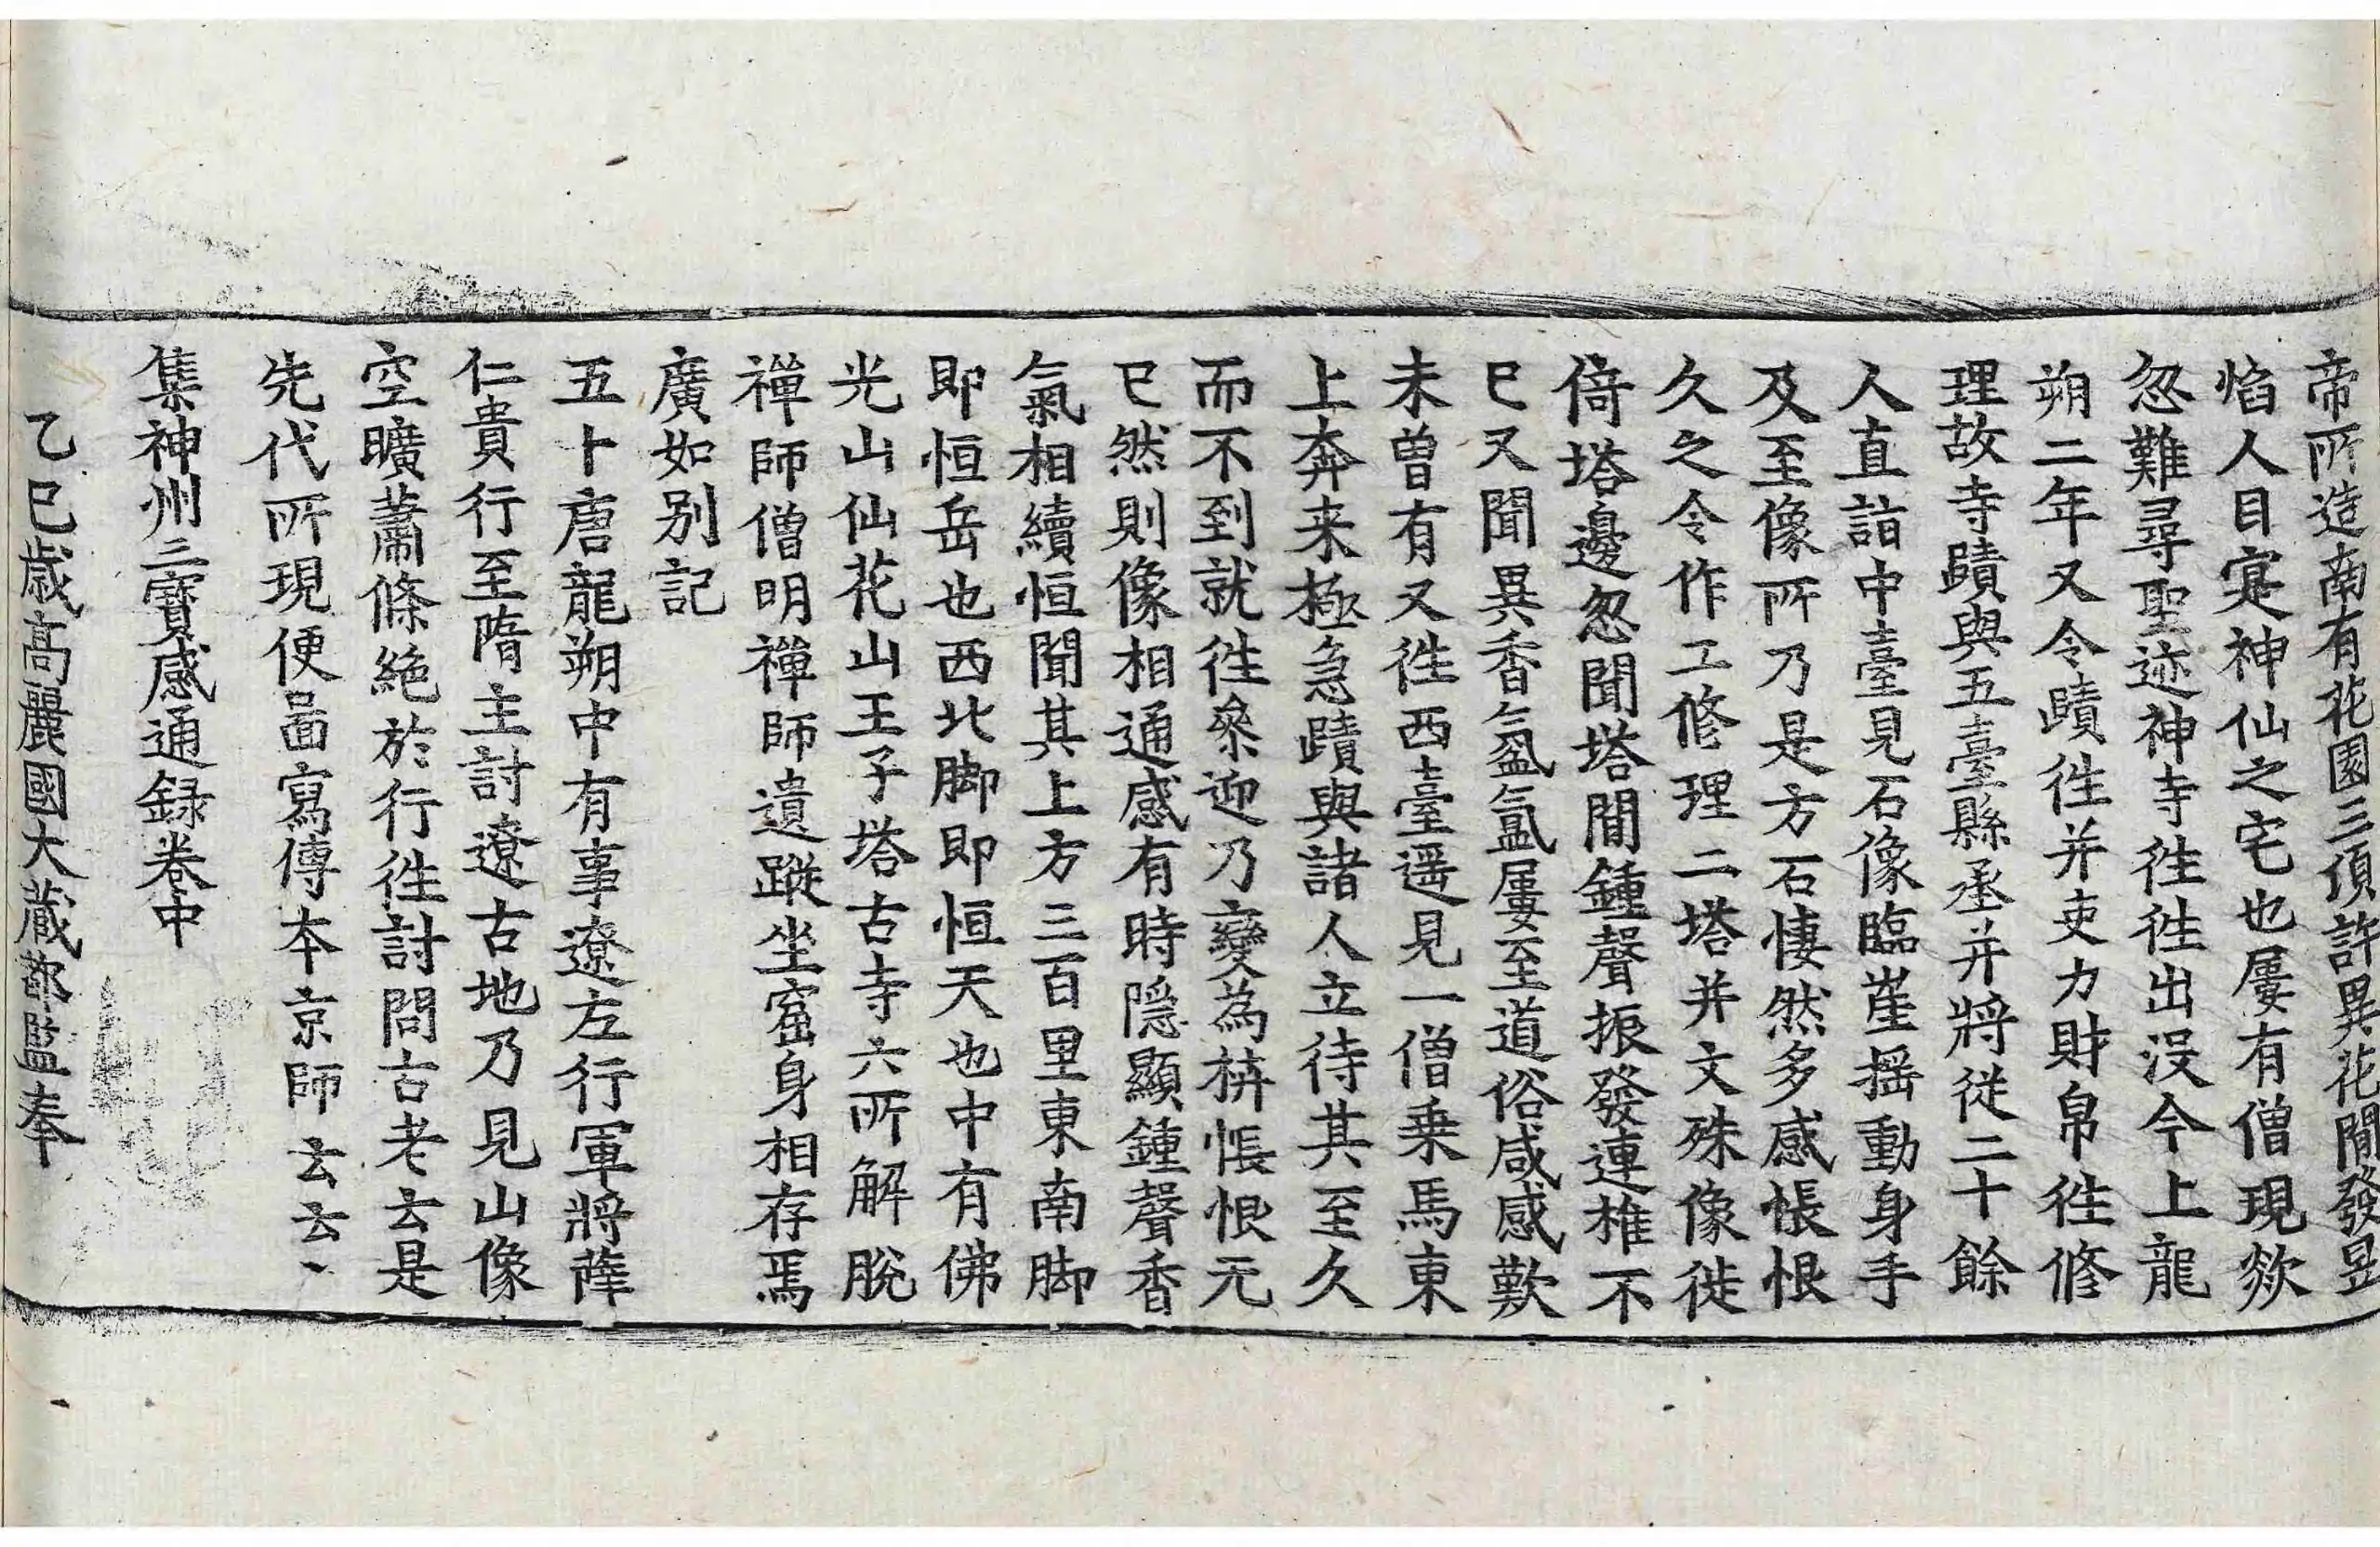 帝所造南有花園三頃許異花間發昱
焰人目寔神仙之宅也屢有僧現欻
忽難尋聖迹神寺徃徃出没今上龍
朔二年又令賾徃并吏力財帛徃修
理故寺賾與五臺縣丞并將從二十餘
人直詣中臺見石像臨崖搖動身手
及至像所乃是方石悽然多感悵恨
久之令作工修理二塔并文殊像徙
倚塔邊忽聞塔間鍾聲振發連椎不
已又聞異香氳氳屢至道俗咸感歎
未曾有又徃西臺遥見一僧乗馬東
上奔来極急賾與諸人立待其至久
而不到就徃叅迎乃變為栟悵恨无
已然則像相通感有時隱顯鍾聲香
氣相續恒聞其上方三百里東南脚
即恒岳也西北脚即恒天也中有佛
光山仙花山王子塔古寺六所解脫
禪師僧明禪師遺蹤坐窟身相存焉
廣如别記
五十唐龍朔中有事遼左行軍將薛
仁貴行至隋主討遼古地乃見山像
空曠蕭條絶於行徃討問古老云是
先代所現便啚寫傳本京師云云丶
集神州三寶感通録卷中
乙巳歲高麗國大藏都監奉